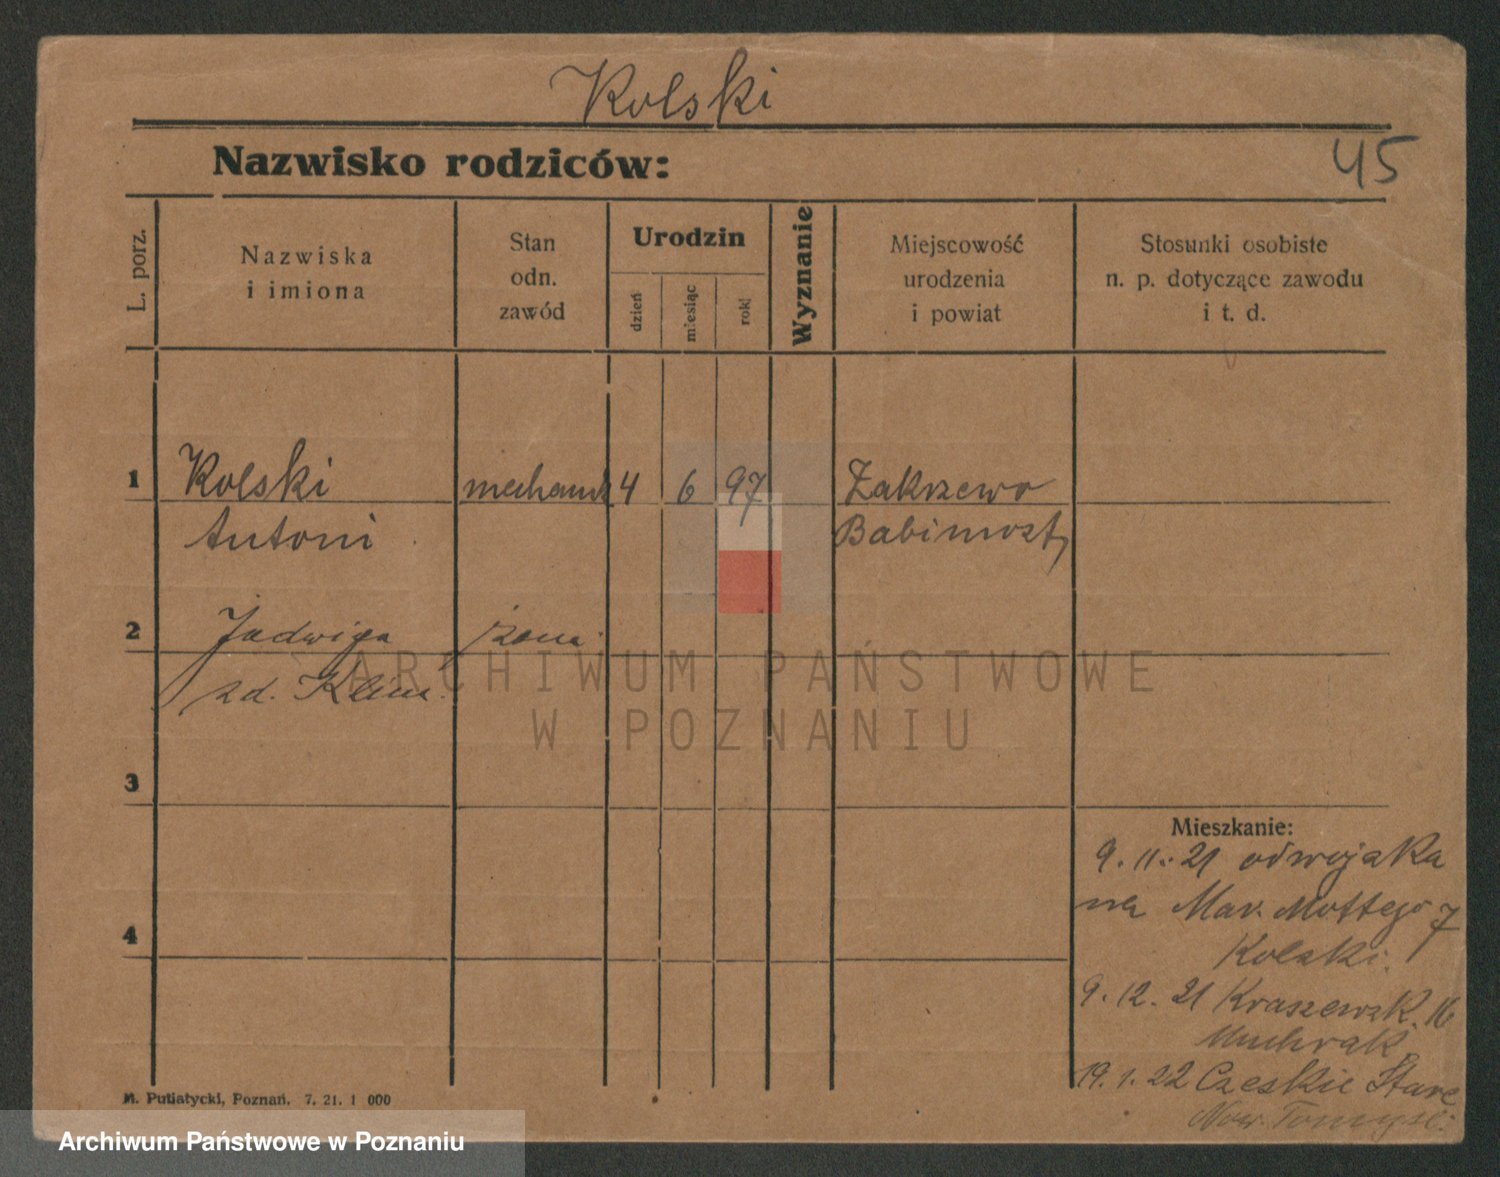 Kolski
Nazwisko rodziców:
45
L. porz.
Nazwiska
i imiona
Stan
odn.
zawód
Urodzin
dzień
miesiąc
rok
Wyznanie
Miejscowość
urodzenia
i powiat
Stosunki osobiste
n. p. dotyczące zawodu
i t. d.
1 Kolski mechanik 4 6 97 Zakrzewo
Antoni Babimost
2 Jadwiga żona
zd. Klim
3
4
Mieszkanie:
9. 11. 21 od wojaka
na Mar. Mottego 7
Kolski.
9. 12. 21 Kraszewsk. 16
Muchrak
19. 1. 22 Czeskie Stare
Now. Tomyśl.
M. Putiatycki, Poznań. 7. 21. 1 000
ARCHIWUM PAŃSTWOWE
W POZNANIU
Archiwum Państwowe w Poznaniu